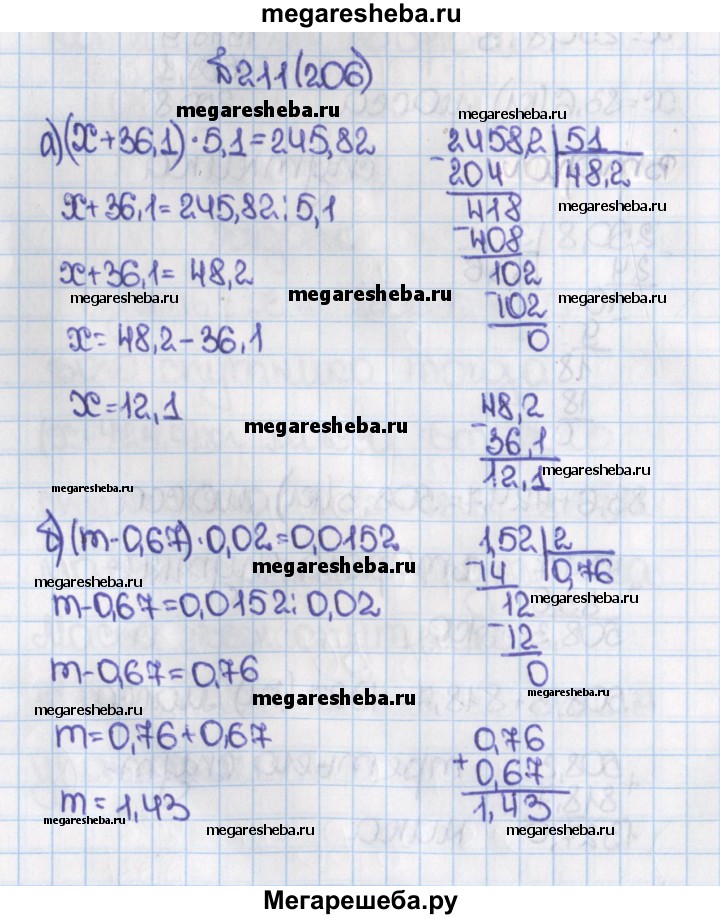 megaresheba.ru
№211(206)
megaresheba.ru
а)(x+36,1)·5,1=245,82
2458,2 | 51
-204 | 48,2
megaresheba.ru
418
-408
102
-102
0
x+36,1=245,82:5,1
x+36,1=48,2
megaresheba.ru
megaresheba.ru
megaresheba.ru
x=48,2-36,1
x=12,1
megaresheba.ru
48,2
-36,1
12,1
megaresheba.ru
megaresheba.ru
б)(m-0,67)·0,02=0,0152
1,52 | 2
-14 | 0,76
megaresheba.ru
12
-12
0
megaresheba.ru
megaresheba.ru
m-0,67=0,0152:0,02
m-0,67=0,76
megaresheba.ru
megaresheba.ru
megaresheba.ru
m=0,76+0,67
0,76
+0,67
1,43
m=1,43
megaresheba.ru
megaresheba.ru
megaresheba.ru
Мегарешеба.ру